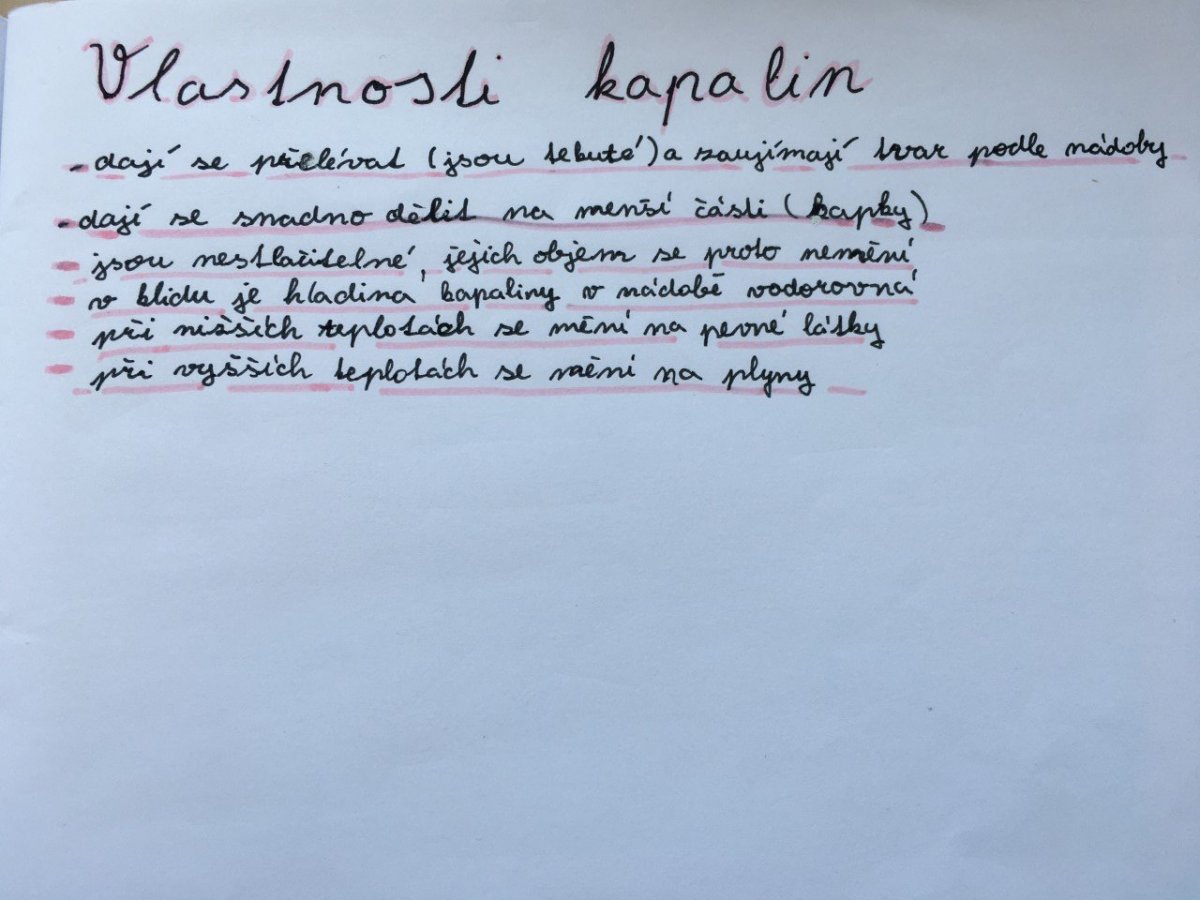 Vlastnosti kapalin
- dají se přelévat (jsou tekuté) a zaujímají tvar podle nádoby
- dají se snadno dělit na menší části (kapky)
- jsou nestlačitelné, jejich objem se proto nemění
- v klidu je hladina kapaliny v nádobě vodorovná
- při nižších teplotách se mění na pevné látky
- při vyšších teplotách se mění na plyny